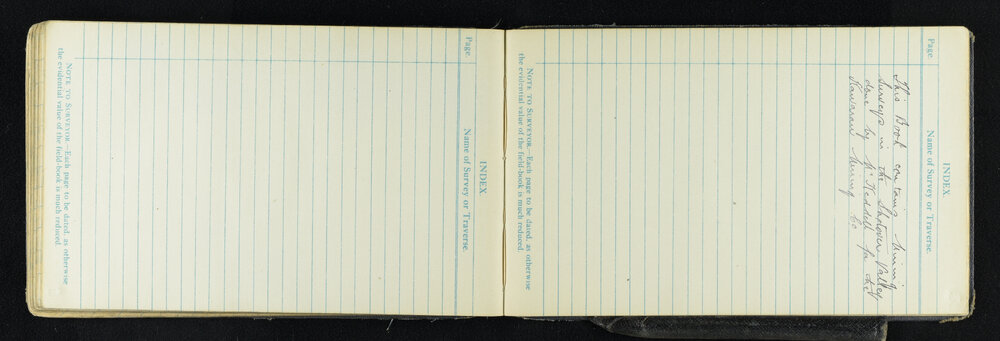 INDEX.
Page. Name of Survey or Traverse.
NOTE TO SURVEYOR.—Each page to be dated, as otherwise
the evidential value of the field-book is much reduced.
INDEX.
Page. Name of Survey or Traverse.
This Book contains Mining
Surveys in the Shotover Valley
done by Mr Heddell for the
Kawarau Mining Co
NOTE TO SURVEYOR.—Each page to be dated, as otherwise
the evidential value of the field-book is much reduced.